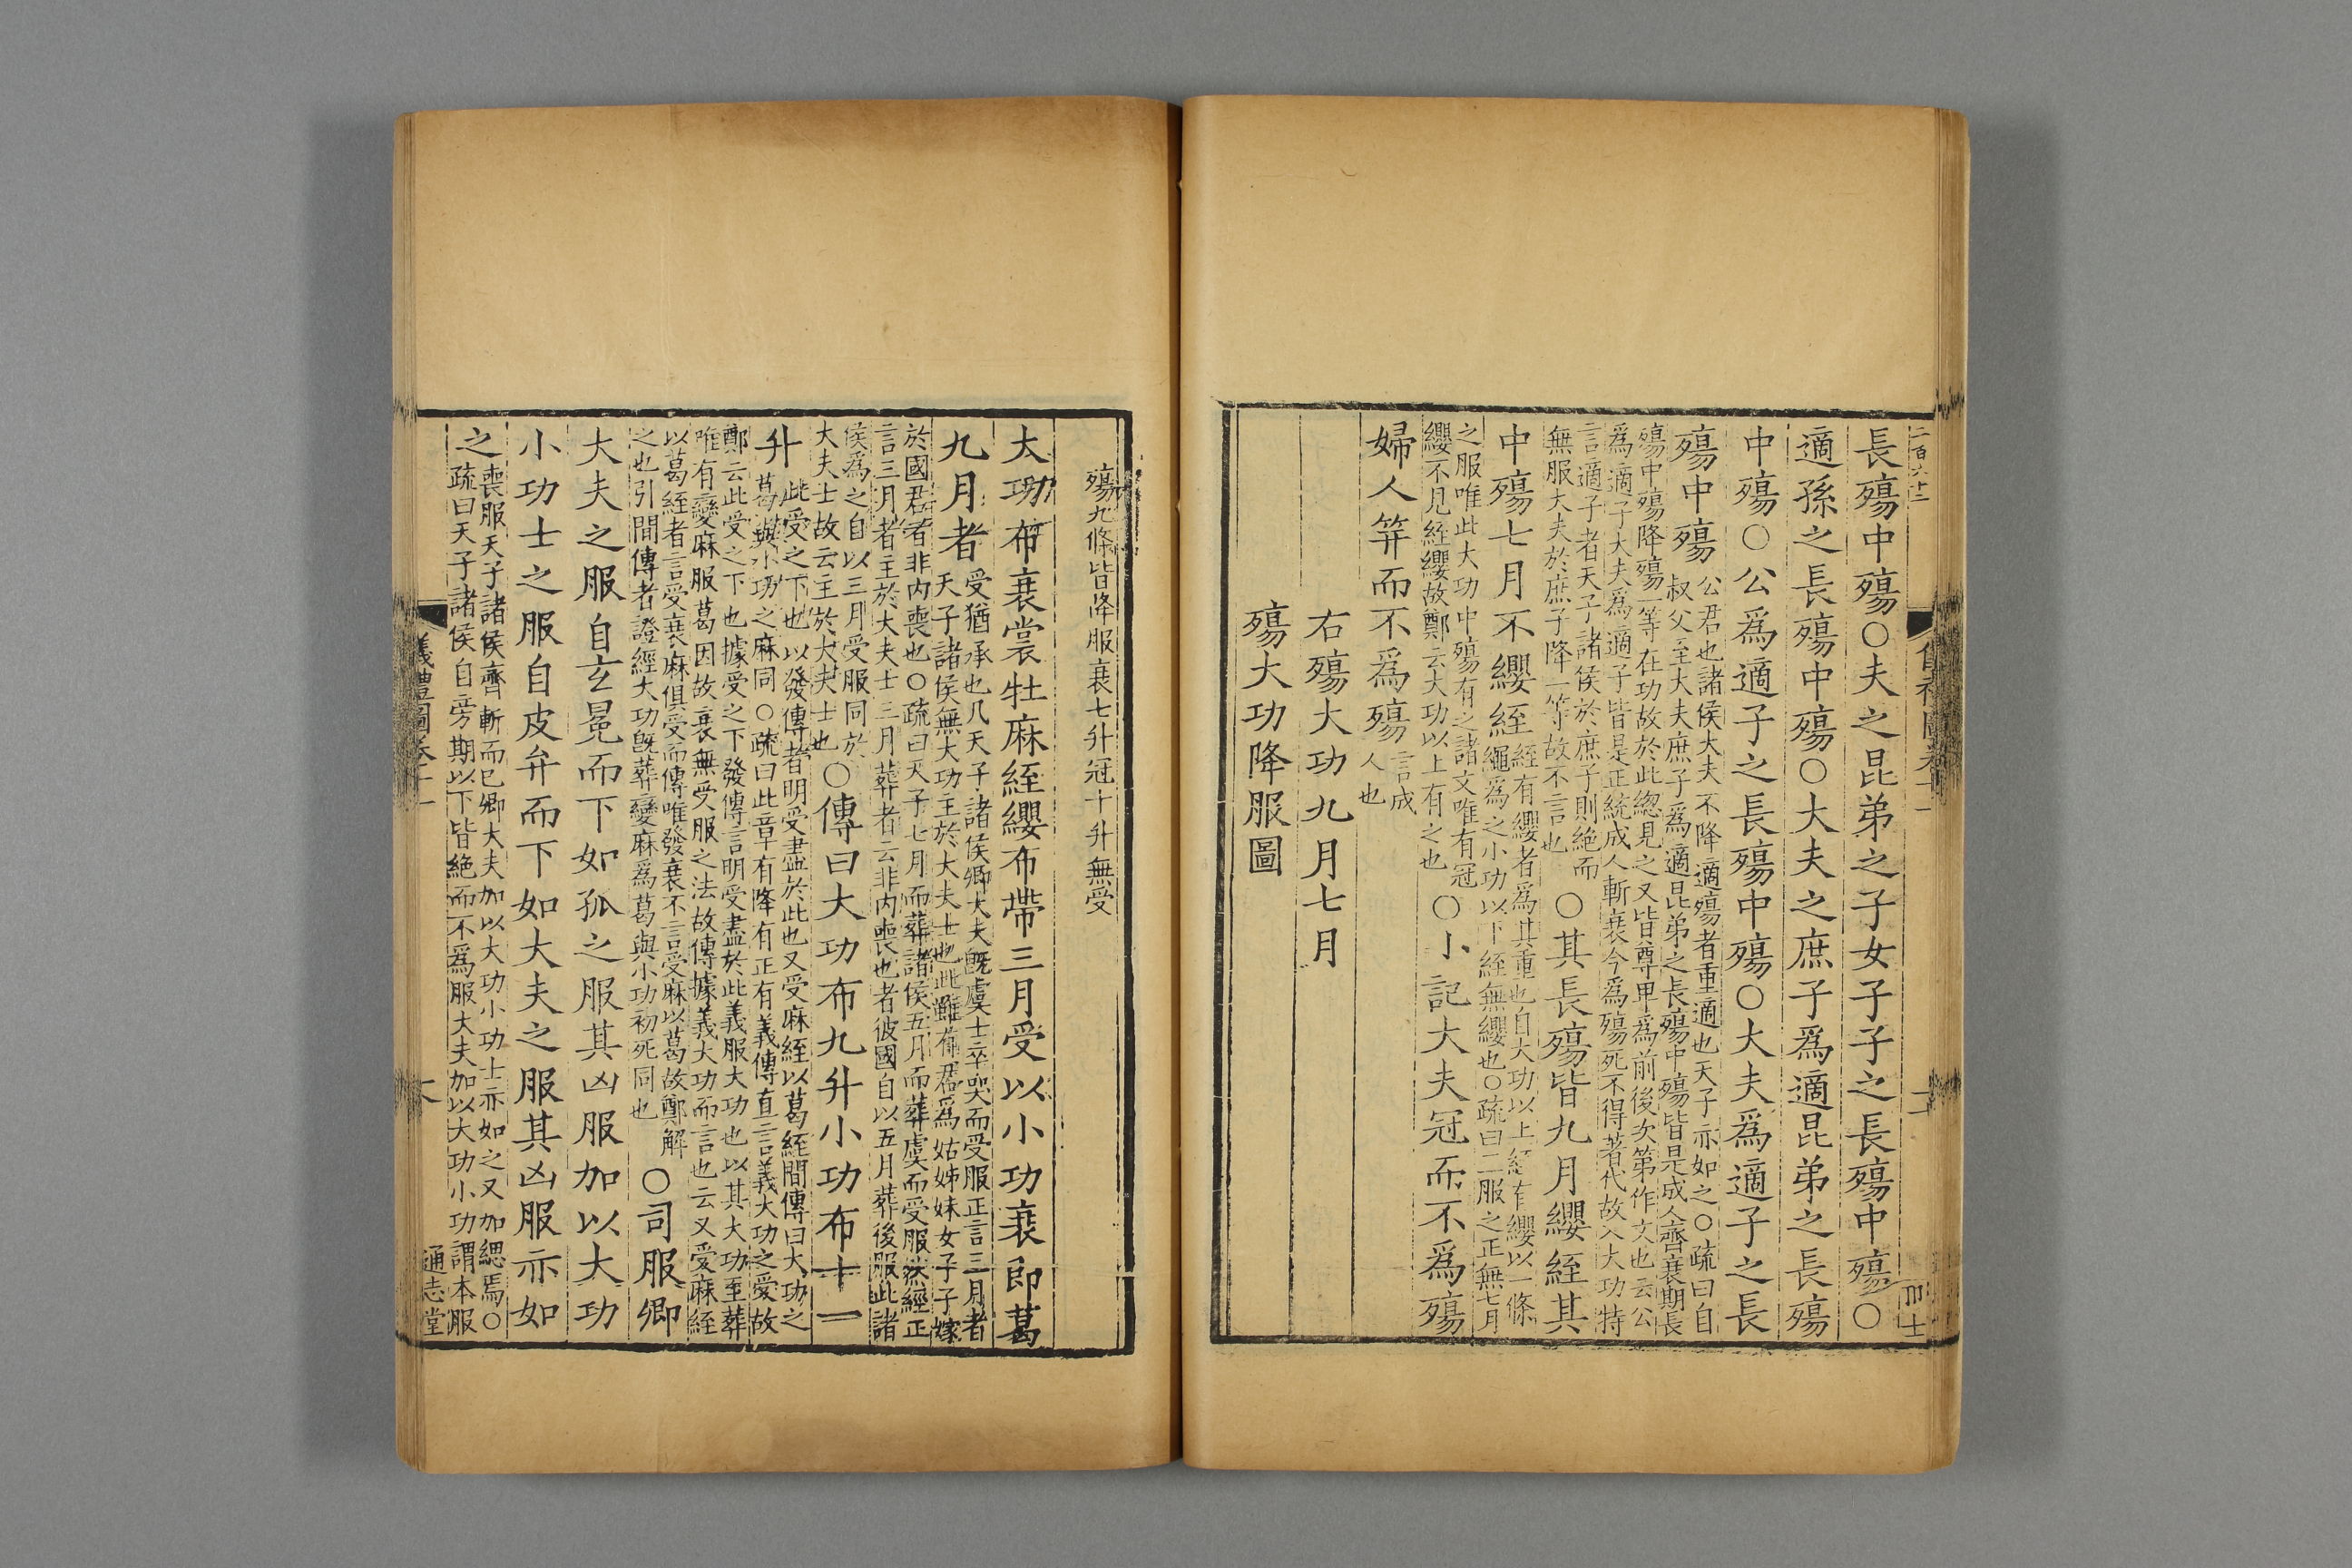 長殤中殤○夫之昆弟之子女子子之長殤中殤○
適孫之長殤中殤○大夫之庶子爲適昆弟之長殤
中殤○公爲適子之長殤中殤○大夫爲適子之長
殤中殤
公君也諸侯大夫不降適殤者重適也天子亦如之○疏曰自
叔父至大夫庶子爲適昆弟之長殤中殤皆是成人齊衰期長
殤中殤降殤一等在功故於此緫見之又皆尊卑爲前後次第作文也云公
爲適子大夫爲適子皆是正統成人斬衰今爲殤死不得著代故入大功特
言適子者天子諸侯於庶子則絶而
無服大夫於庶子降一等故不言也
○其長殤皆九月纓絰其
中殤七月不纓絰
絰有纓者爲其重也自大功以上絰有纓以一條
繩爲之小功以下絰無纓也○疏曰二服之正無七月
之服唯此大功中殤有之諸文唯有冠
纓不見絰纓故鄭云大功以上有之也
○小記大夫冠而不爲殤
婦人筓而不爲殤
言成
人也
右殤大功九月七月
殤大功降服圖
殤九條皆降服衰七升冠十升無受
大功布衰裳牡麻絰纓布帶三月受以小功衰即葛
九月者
受猶承也凡天子諸侯卿大夫既虞士卒哭而受服正言三月者
天子諸侯無大功主於大夫士也此雖有君爲姑姊妹女子子嫁
於國君者非内喪也○疏曰天子七月而葬諸侯五月而葬虞而受服然經正
言三月者主於大夫士三月葬者云非内喪也者彼國自以五月葬後服此諸
侯爲之自以三月受服同於
大夫士故云主於大夫士也
○傳曰大功布九升小功布十一
升
此受之下也以發傳者明受盡於此也又受麻絰以葛絰間傳曰大功之
葛與小功之麻同○疏曰此章有降有正有義傳直言義大功之受故
鄭云此受之下也據受之下發傳言明受盡於此義服大功也以其大功至葬
唯有變麻服葛因故衰無受服之法故傳據義大功而言也云又受麻絰
以葛絰者言受衰麻俱受而傳唯發衰不言受麻以葛故鄭解
之也引間傳者證經大功旣葬變麻爲葛與小功初死同也
○司服卿
大夫之服自玄冕而下如孤之服其凶服加以大功
小功士之服自皮弁而下如大夫之服其凶服亦如
之
喪服天子諸侯齊斬而已卿大夫加以大功小功士亦如之又加緦焉○
疏曰天子諸侯自旁期以下皆絶而不爲服大夫加以大功小功謂本服
儀禮圖卷十一
通志堂